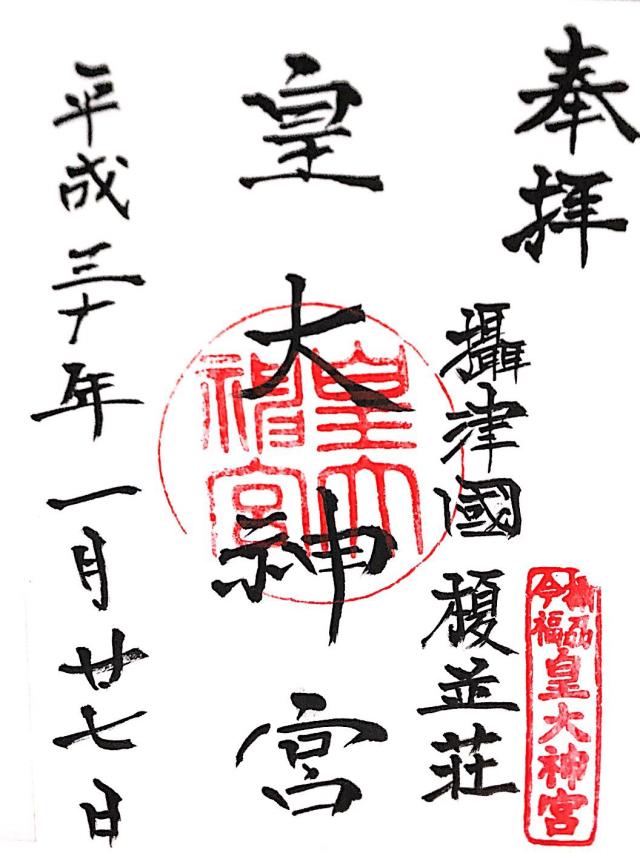 奉拝
攝津國 榎並荘
今福
皇大神宮
皇大神宮
皇大神宮
平成三十年一月廿七日